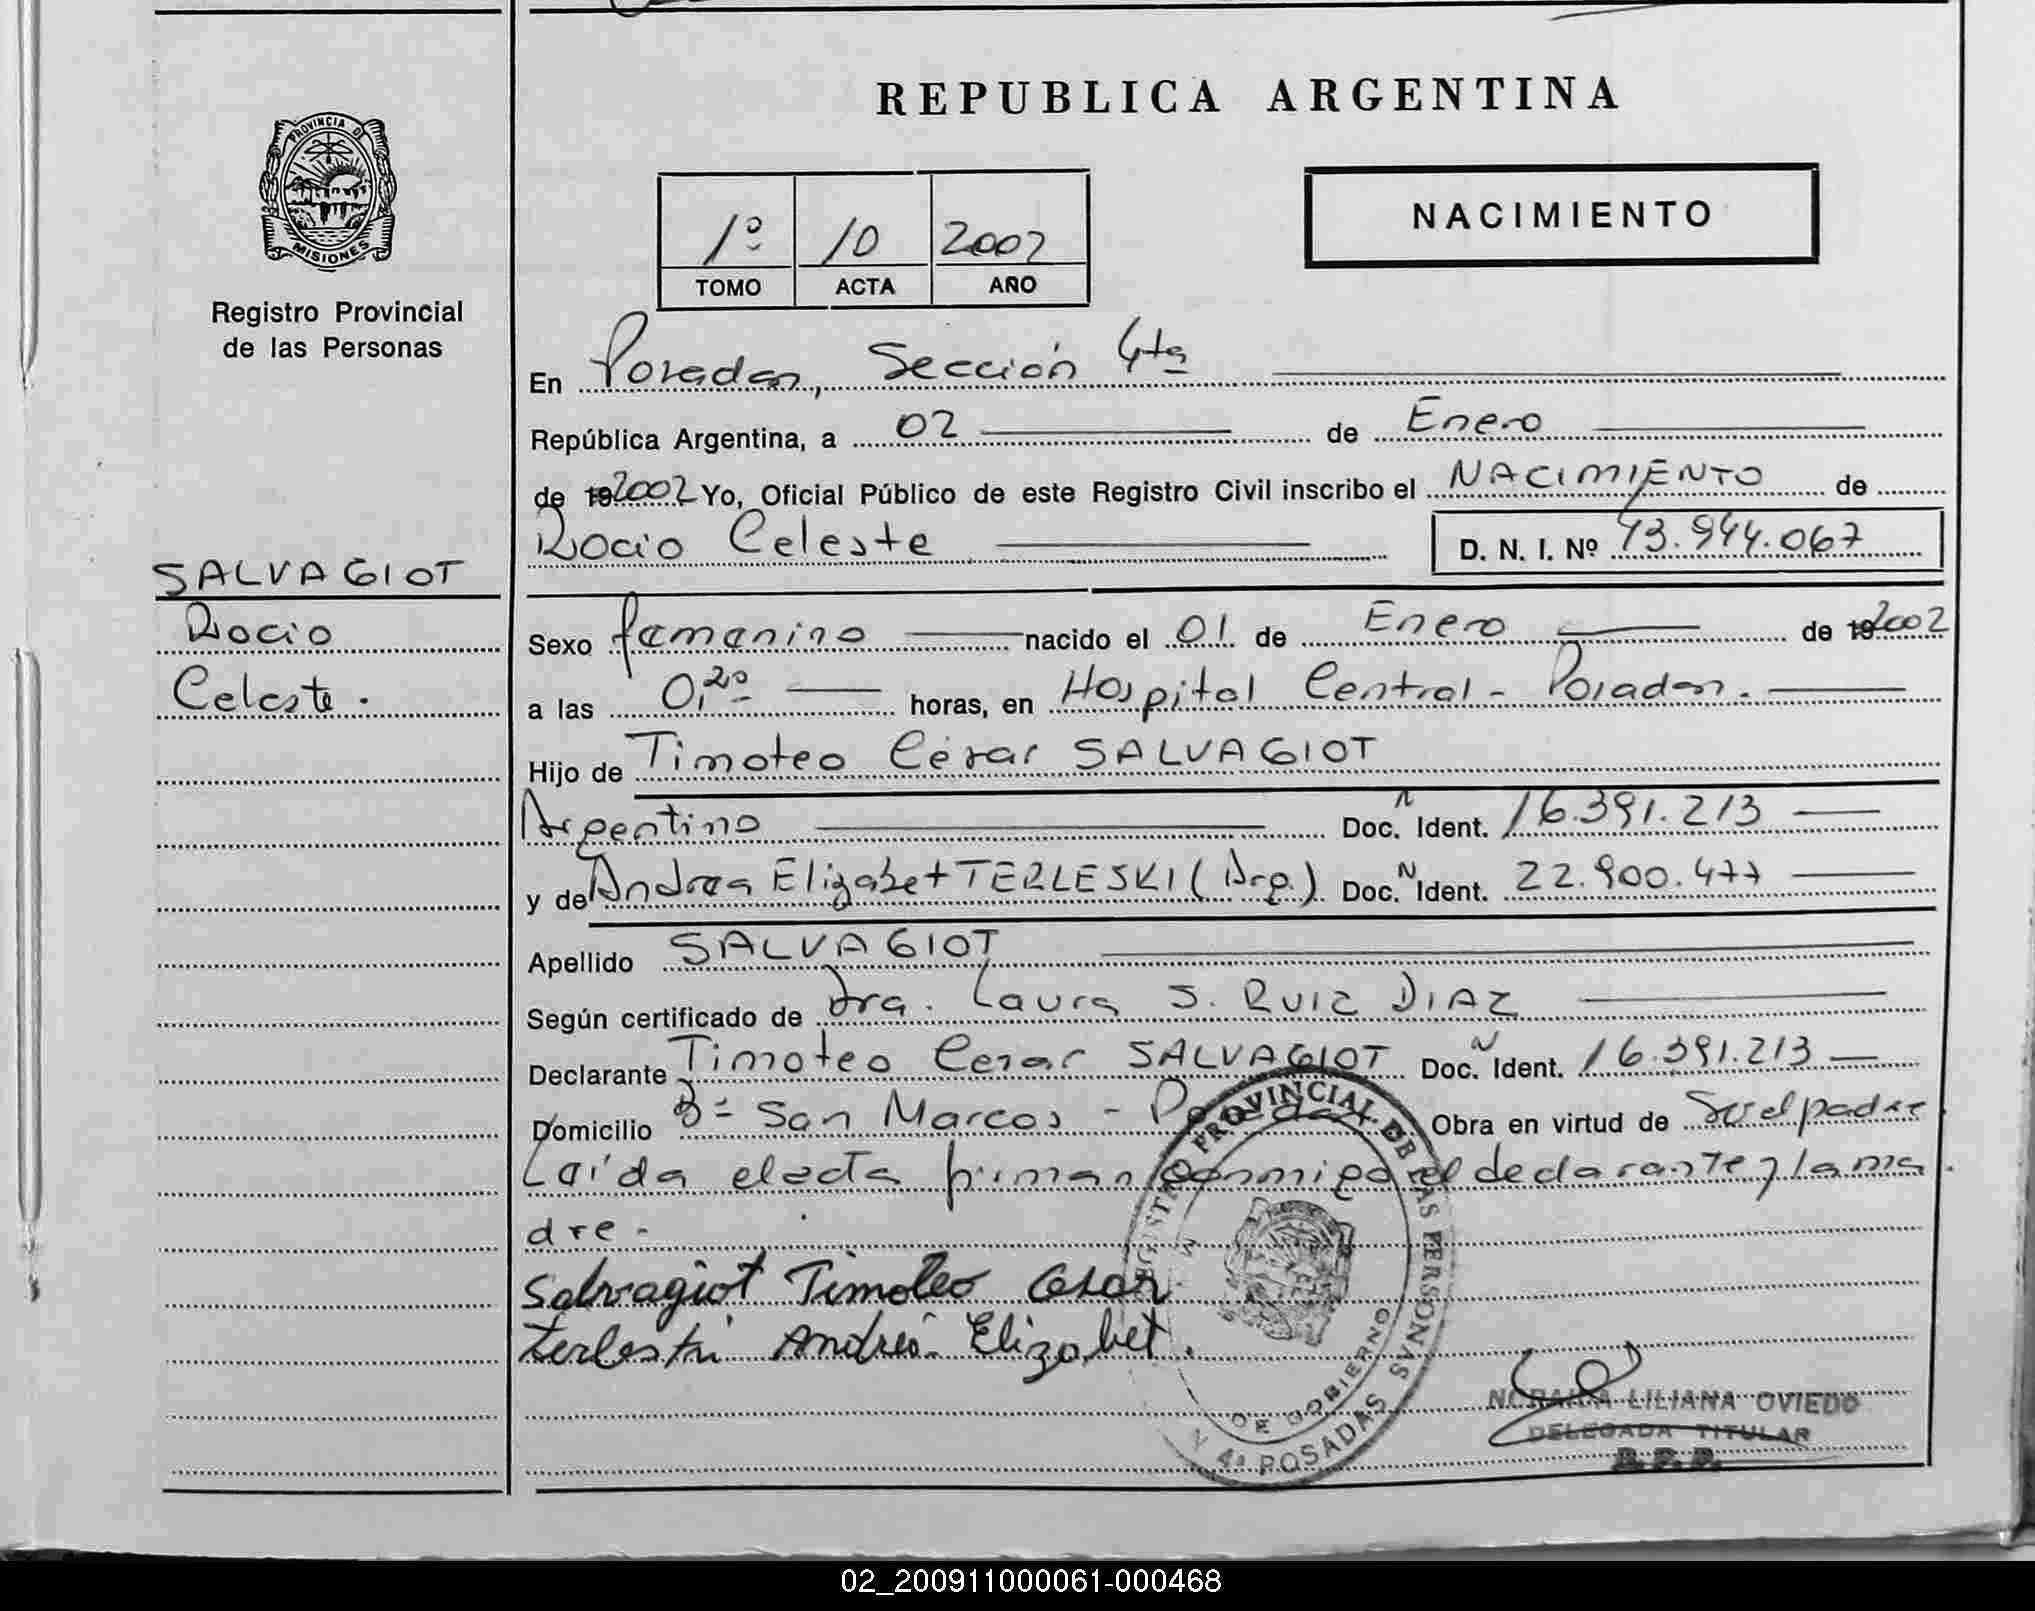 REPUBLICA ARGENTINA
PROVINCIA DE
MISIONES
Registro Provincial
de las Personas
NACIMIENTO
1º 10 2002
TOMO ACTA AÑO
En Posadas, Sección 4ta
República Argentina, a 02 de Enero
de 192002 Yo, Oficial Público de este Registro Civil inscribo el NACIMIENTO de
Rocio Celeste D. N. I. Nº 43.944.067
SALVAGIOT
Rocio
Celeste.
Sexo femenino nacido el 01 de Enero de 192002
a las 0,20 horas, en Hospital Central - Posadas.
Hijo de Timoteo César SALVAGIOT
Argentino Doc. N Ident. 16.391.213
y de Andrea Elizabet TERLESKI (Arg.) Doc. N Ident. 22.900.477
Apellido SALVAGIOT
Según certificado de Dra. Laura S. RUIZ DIAZ
Declarante Timoteo Cesar SALVAGIOT Doc. N Ident. 16.391.213
Domicilio Bº San Marcos - Posadas Obra en virtud de Ser el padre
Laída el acta firman conmigo el declarante y la ma
dre.
Salvagiot Timoteo Cesar
Terleski Andrea Elizabet.
REGISTRO PROVINCIAL DE LAS PERSONAS
DE GOBIERNO
4ª POSADAS
NORAIMA LILIANA OVIEDO
DELEGADA TITULAR
R.P.P.
02_200911000061-000468